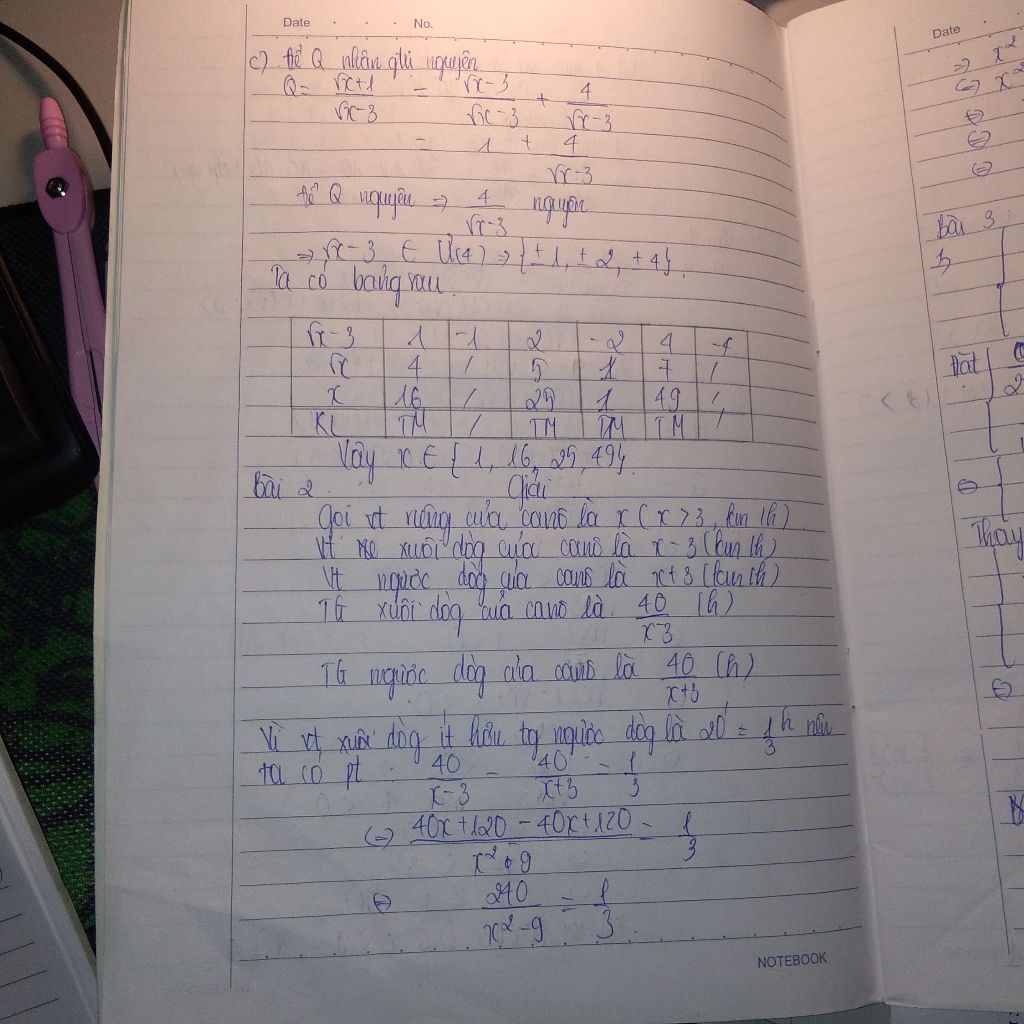 Date . . . No.
c) Để Q nhận giá nguyên
Q = √x+1 / √x-3 = √x-3 / √x-3 + 4 / √x-3
= 1 + 4 / √x-3
Để Q nguyên => 4 / √x-3 nguyên
=> √x-3 ∈ Ư(4) => {±1, ±2, ±4}.
Ta có bảng sau.
√x-3 1 -1 2 -2 4 -4
√x 4 / 5 1 7 /
x 16 / 25 1 49 /
KL TM / TM TM TM /
Vậy x ∈ {1, 16, 25, 49}.
Bài 2. Giải
Gọi vt riêng của canô là x (x > 3, km/h)
Vt xuôi dòg của canô là x-3 (km/h)
Vt ngược dòg của canô là x+3 (km/h)
TG xuôi dòg của canô là 40 / x-3 (h)
TG ngược dòg của canô là 40 / x+3 (h)
Vì vt xuôi dòg ít hơn tg ngược dòg là 20' = 1/3 h nên
ta có pt 40 / x-3 - 40 / x+3 = 1/3
<=> 40x+120-40x+120 / x² 9 = 1/3
<=> 240 / x²-9 = 1/3
NOTEBOOK
Date
=> x²
<=> x²
<=>
<=>
<=>
Bài 3
Đặt
2
<=>
Thay
<=>